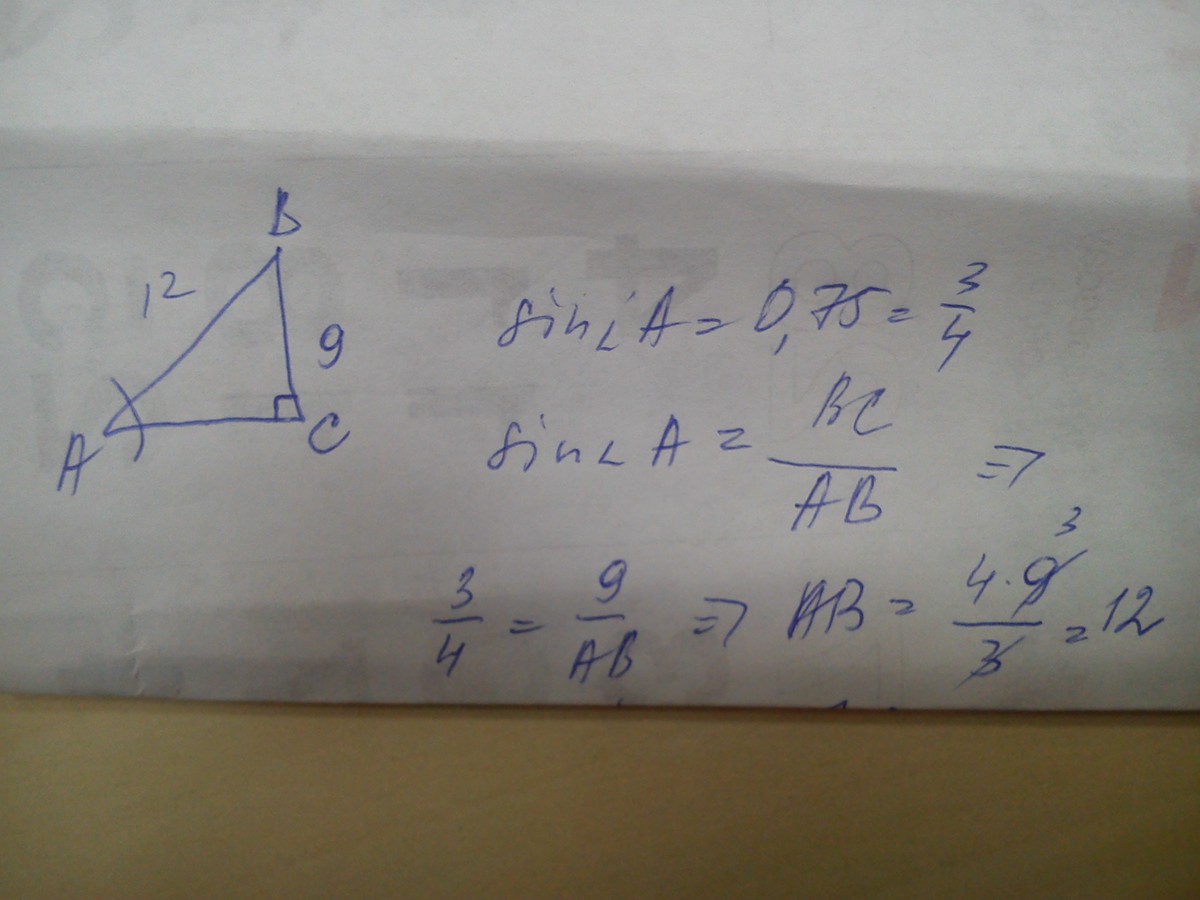 B
12
9
A
C
sin∠A = 0,75 = 3/4
sin∠A = BC/AB ⇒
3/4 = 9/AB ⇒ AB = 4·9/3 = 12
3